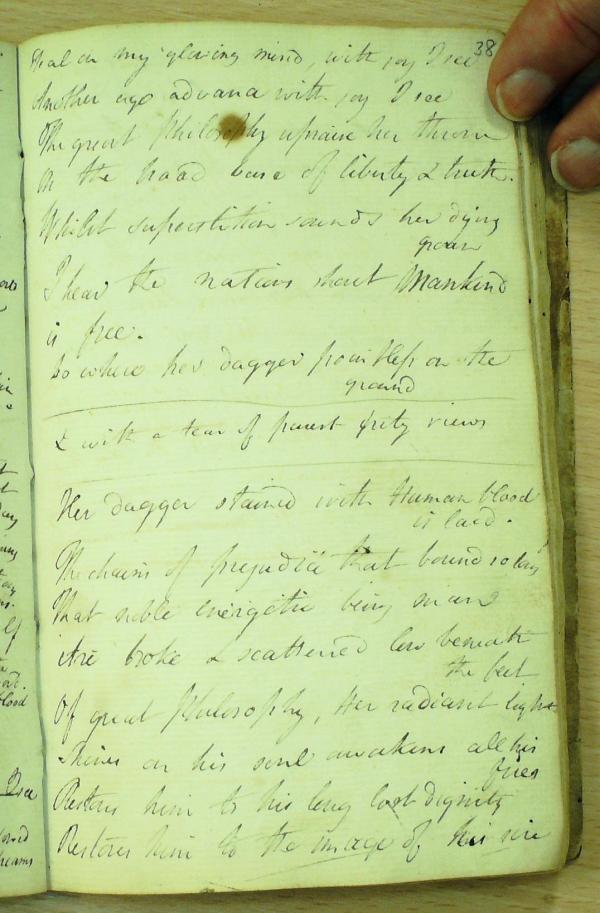 38
Steal on my glowing mind, with joy I see
Another age advance with joy I see
The great Philosophy upraise her throne
On the broad base of liberty & truth.
Whilst superstition sounds her dying
groan
I hear the nations shout Mankind
is free.
So where her dagger pointless on the
ground
& with a tear of purest pity views
Her dagger stained with Human blood
is laid.
The chains of prejudice that bound so long
That noble energetic being man
Are broke & scattered low beneath
the feet
Of great Philosophy, Her radiant light
Shines on his soul awakens all his
fires
Restores him to his long lost dignity
Restores him to the image of his sire